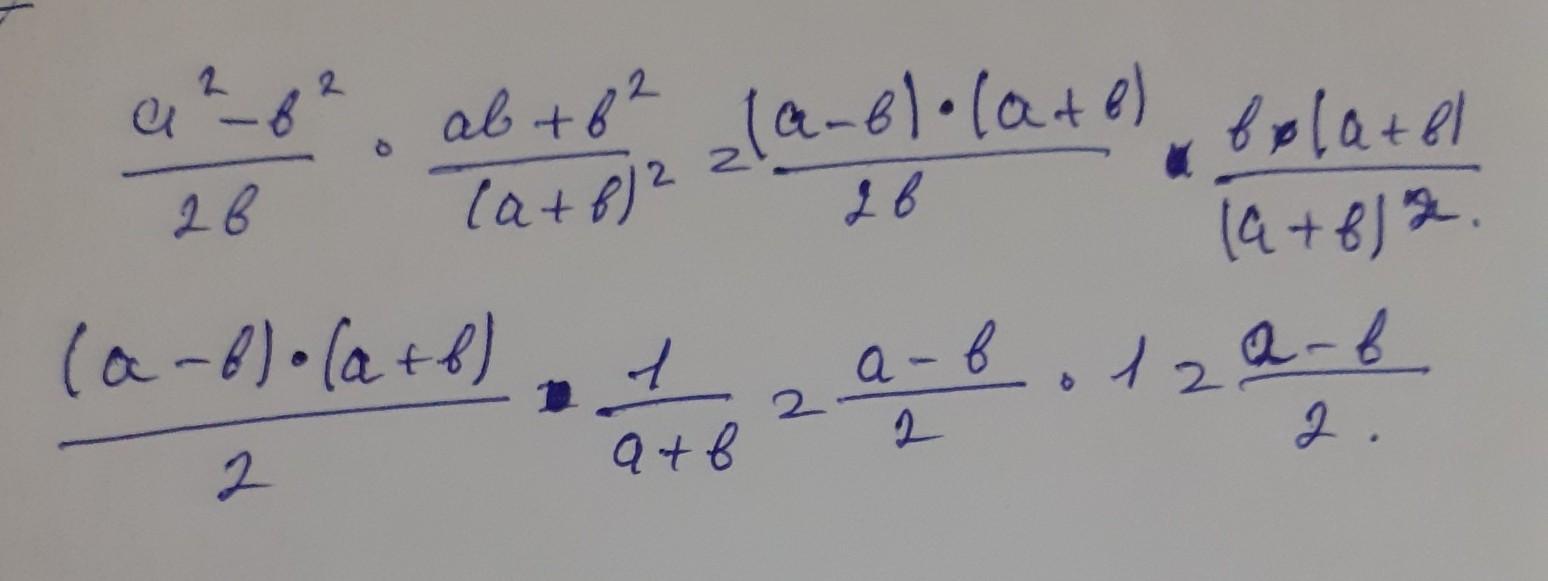 (a²-b²)/(2b) · (ab+b²)/(a+b)² = ((a-b)·(a+b))/(2b) · (b·(a+b))/(a+b)².
((a-b)·(a+b))/2 · 1/(a+b) = (a-b)/2 · 1 = (a-b)/2.